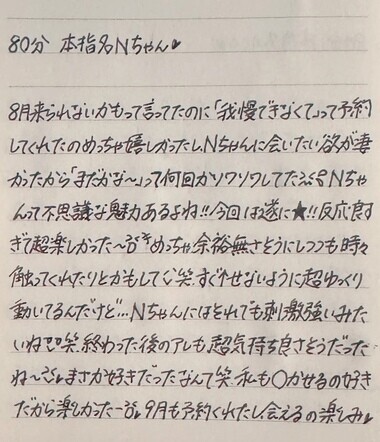 80分 本指名Nちゃん♥
8月来られないかもって言ってたのに「我慢できなくて」って予約
してくれたのめっちゃ嬉しかったし、Nちゃんに会いたい欲が凄
かったから「まだかな〜」って何回かソワソワしてた Nちゃ
んって不思議な魅力あるよね!!今回は遂に★!!反応良す
ぎて超楽しかった〜 めっちゃ余裕無さそうにしつつも時々
触ってくれたりとかもして 笑 すぐ なないように超ゆっくり
動いてるんだけど…Nちゃんにはそれでも刺激強いみた
いね 笑 終わった後のアレも超気持ち良さそうだった
ね〜 まさか好きだったなんて笑 私も○かせるの好き
だから楽しかった〜 9月も予約くれたし会えるの楽しみ♥